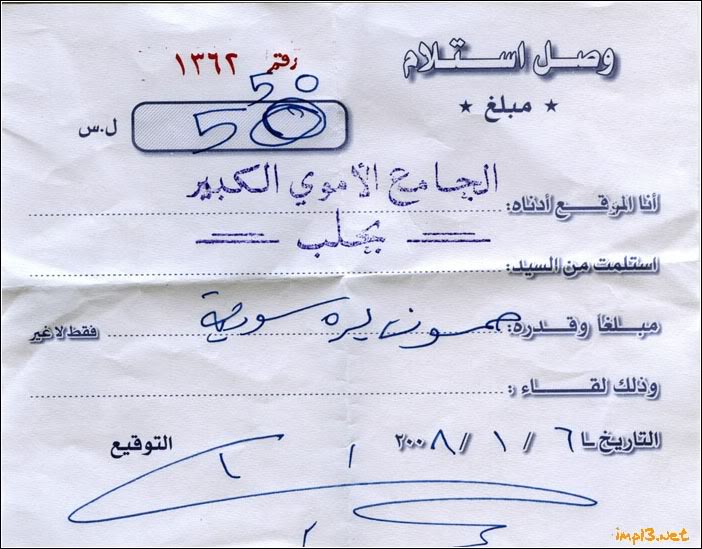 وصل استلام
رقم ١٣٦٢
★ مبلغ ★
50
50 ل.س
أنا الموقع أدناه:
الجامع الأموي الكبير
بحلب
استلمت من السيد:
مبلغاً وقدره: خمسون ليره سورية فقط لا غير
وذلك لقاء:
التاريخ ٦ / ١ / ٢٠٠٨ التوقيع
impl3.net